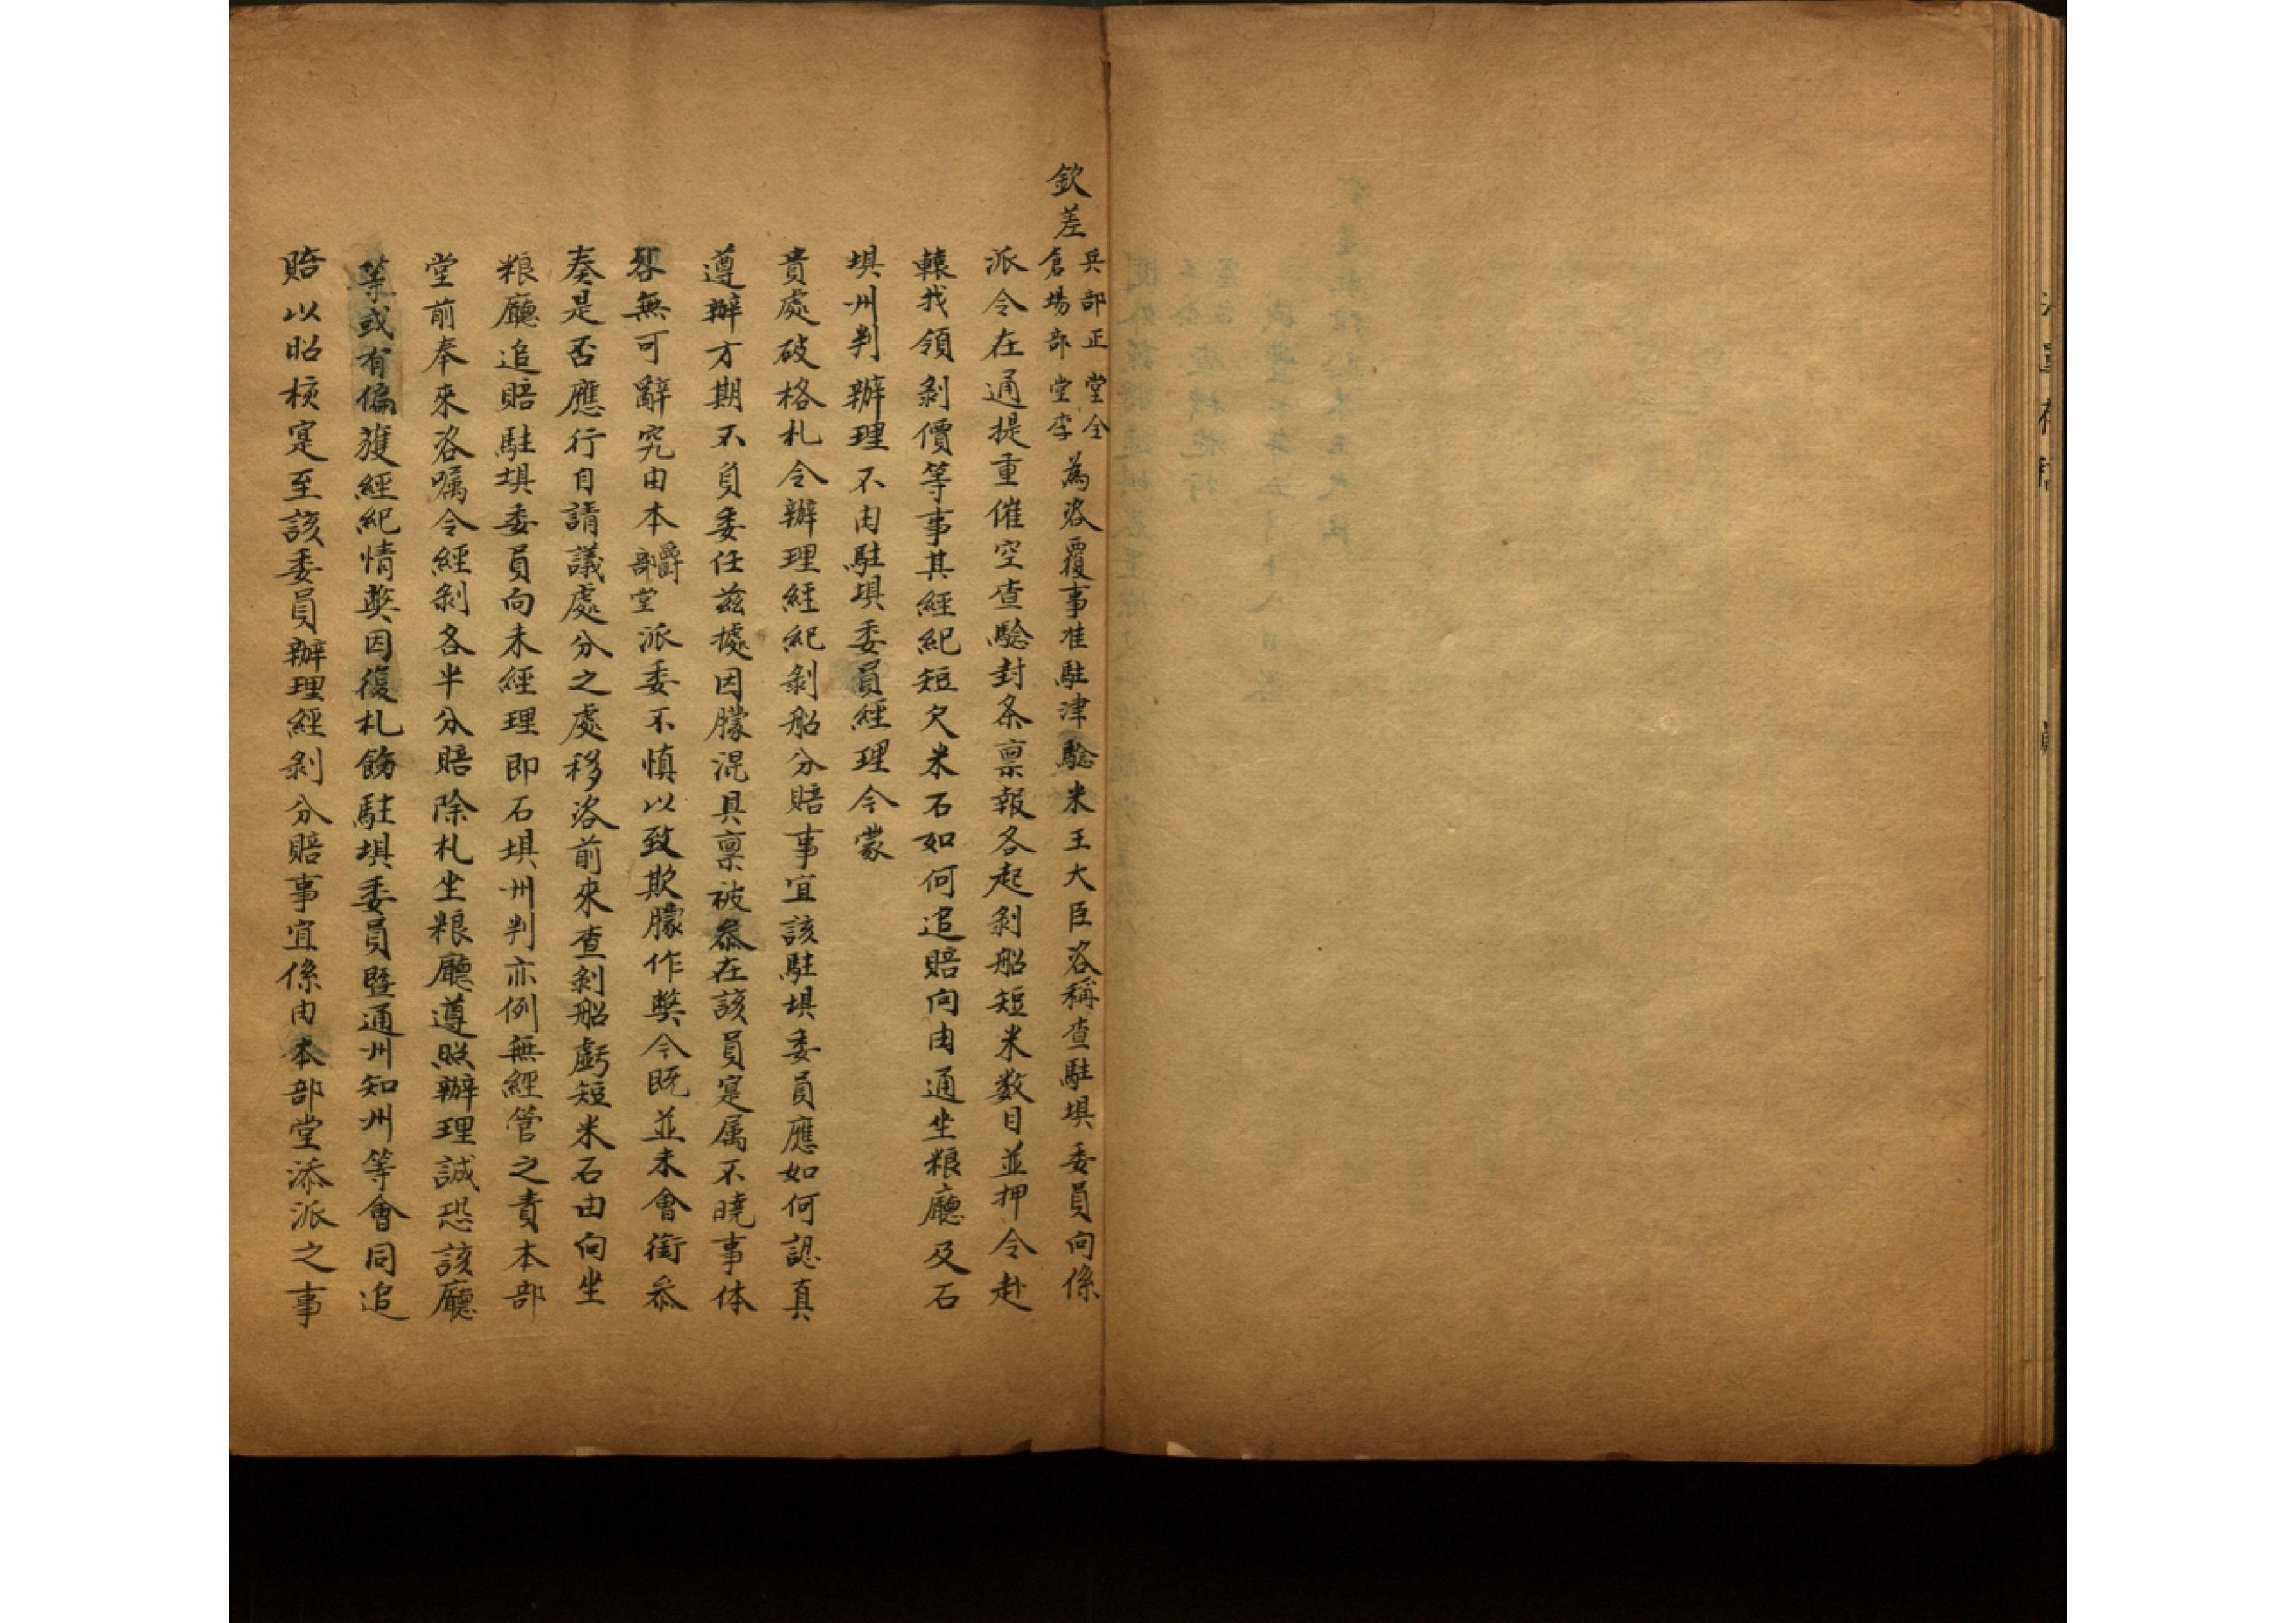 欽差兵部正堂全倉場部堂李為咨覆事准駐津驗米王大臣咨稱查駐垻委員向係
派令在通提重催空查驗封条禀報各起剝船短米数目並押令赴
轅找領剝價等事其經紀短欠米石如何追賠向由通坐粮廳及石
垻州判辦理不由駐垻委員經理今蒙
貴處破格札令辦理經紀剝船分賠事宜該駐垻委員應如何認真
遵辦方期不負委任茲據因朦混具禀被叅在該員寔属不曉事体
咎無可辭究由本爵部堂派委不慎以致欺朦作獘今既並未會銜叅
奏是否應行自請議處分之處移咨前來查剝船虧短米石由向坐
粮廳追賠駐垻委員向未經理即石垻州判亦例無經管之責本部
堂前奉來咨嘱令經剝各半分賠除札坐粮廳遵照辦理誠恐該廳
等或有偏護經紀情獘因復札飭駐垻委員曁通州知州等會同追
賠以昭核寔至該委員辦理經剝分賠事宜係由本部堂添派之事